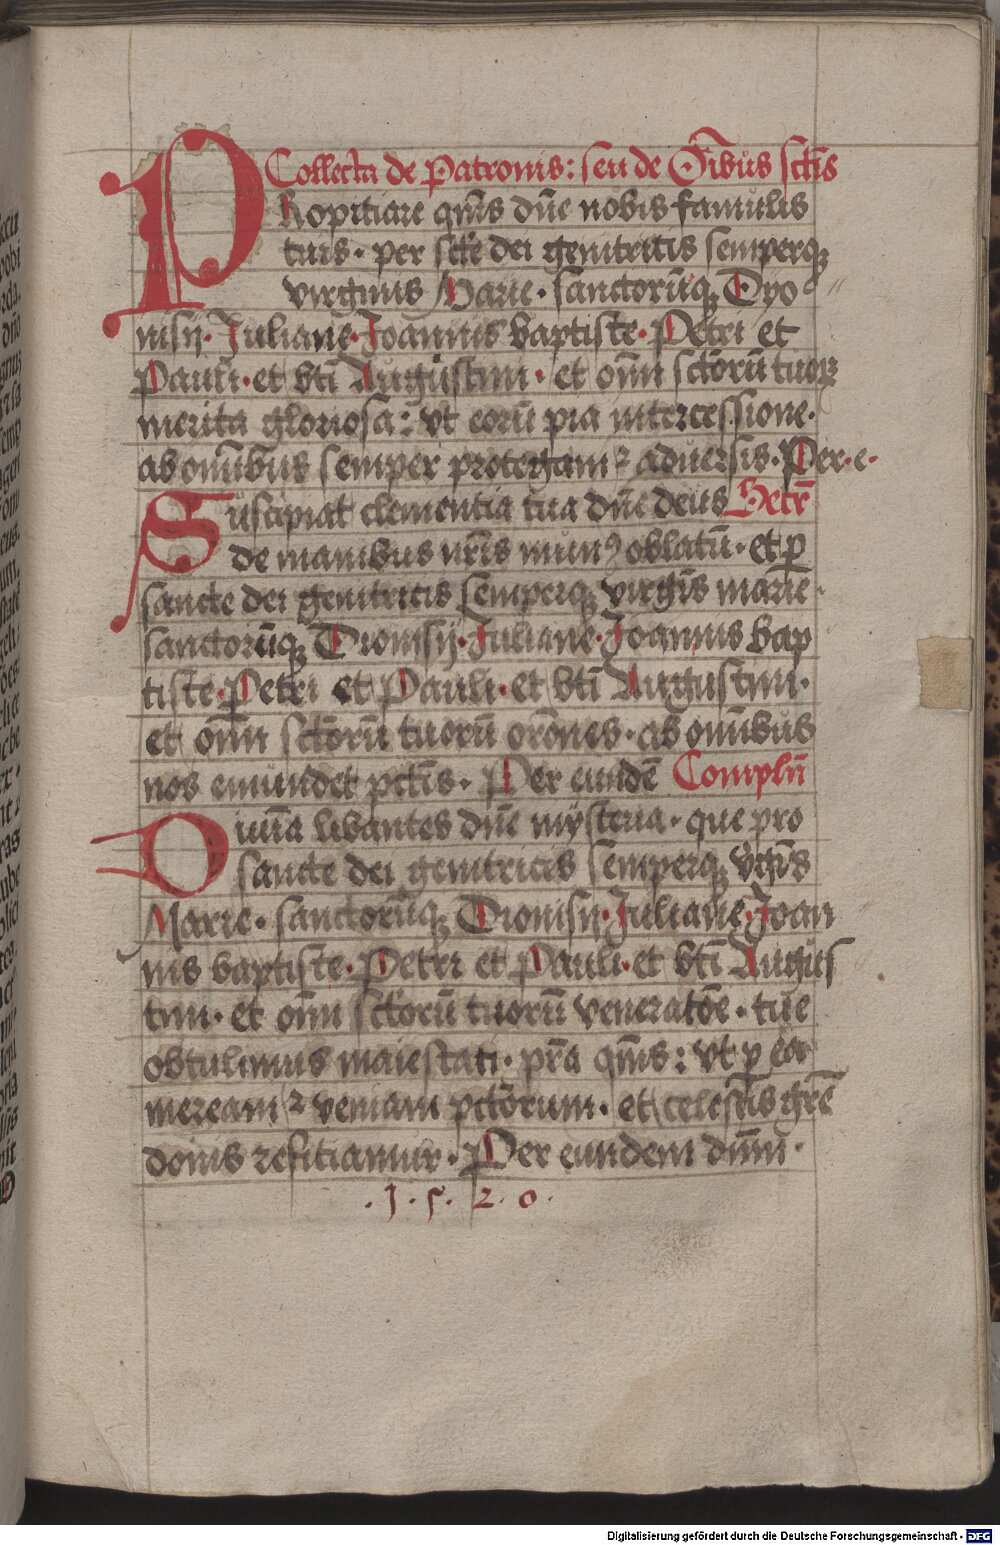 Collecta de Patronis: seu de Oı̄bus sctı̄s
PRopitiare qm̄s dn̄e nobis famulis
tuis · per scte dei genitricis semperqꝫ
virginis Marie · sanctorūqꝫ Dyo
nisij · Juliane · Joannis baptiste · Petri et
Pauli · et bti Augustini · et om̄i sctorū tuoꝝ
merita gloriosa: vt eorū pia intercessione ·
ab omıbus semper protegamᷣ aduersis · Per · e ·
Suscipiat clementia tua dn̄e deus Secr̄
de manibus nr̄is munꝰ oblatū · et ꝑ
sancte dei genitricis semperqꝫ virgīs marie ·
sanctorūqꝫ Dionisij · Juliane · Joannis bap
tiste · Petri et Pauli · et bti Augustini ·
et om̄i sctorū tuorū orōnes · ab om̄ibus
nos emundet pctı̄s · Per eundē Compln̄
Diuīa libantes dn̄e mysteria · que pro
sancte dei genitricis semperqꝫ v̄gīs
Marie · sanctorūqꝫ Dionisij · Juliane · Joan
nis baptiste · Petri et Pauli · et bti Augus
tini · et om̄i sctorū tuorū veneratōe · tue
obtulimus maiestati · pn̄a qm̄s: vt ꝑ ea
mereamᷣ veniam pctōrum · et celestis grē
donis reficiamur · Per eundem dn̄m ·
· 1 · 5 · 2 · 0 ·
Digitalisierung gefördert durch die Deutsche Forschungsgemeinschaft - DFG